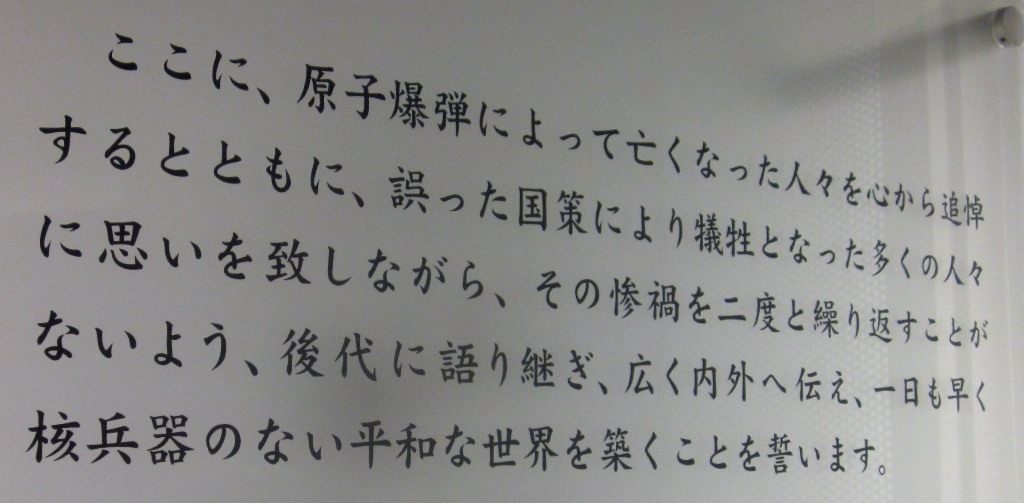 ここに、原子爆弾によって亡くなった人々を心から追悼
するとともに、誤った国策により犠牲となった多くの人々
に思いを致しながら、その惨禍を二度と繰り返すことが
ないよう、後代に語り継ぎ、広く内外へ伝え、一日も早く
核兵器のない平和な世界を築くことを誓います。